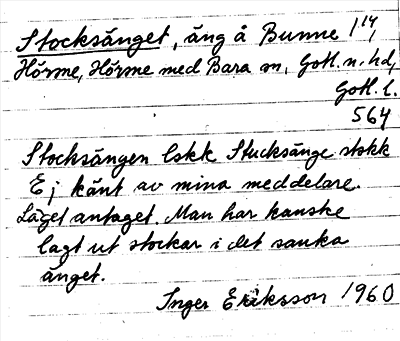 Stocksänget, äng å Bunne 1 14,
Hörsne, Hörsne med Bara sn, Gotl. n. hd,
Gotl. l.
564
Stocksängen lskk Stucksänge stskk
Ej känt av mina meddelare.
Läget antaget. Man har kanske
lagt ut stockar i det sanka
änget.
Inger Eriksson 1960